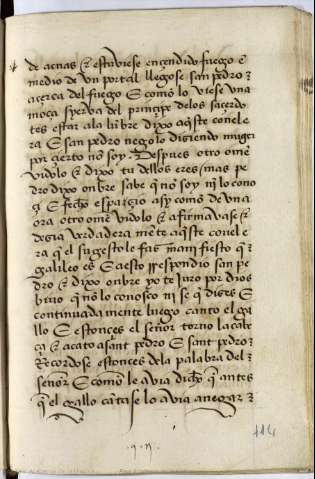 de acnas & estuviese encendido fuego e
medio de vn portal llegose san pedro &
açerca del fuego E como lo viese vna
moça syerva del prinçipe delos saçerdo
tes estar ala lunbre dixo aqste con el e
ra E san pedro nego lo diziendo muger
por çierto no soy. Despues otro ome
vidolo & dixo tu dellos eres / mas pe
dro dixo onbre sabe q no soy ni lo cono
E fecho espaçio asy como de vna
ora otro ome vidolo & afirmavase &
dezia verdadera mete aqste con el e
ra q el su gesto le faz manifiesto q
galileo es E a esto rrespondio san pe
dro & dixo onbre yo te juro por dios
bivo q no lo conosco ni se q dizes E
continuada mente luego canto el ga
llo E estonçes el señor torno la cabe
ça & acato a sant pedro E sant pedro
Recordose estonçes dela palabra del
señor E como le avia dicho q antes
q el gallo cātase lo avia a negar
114